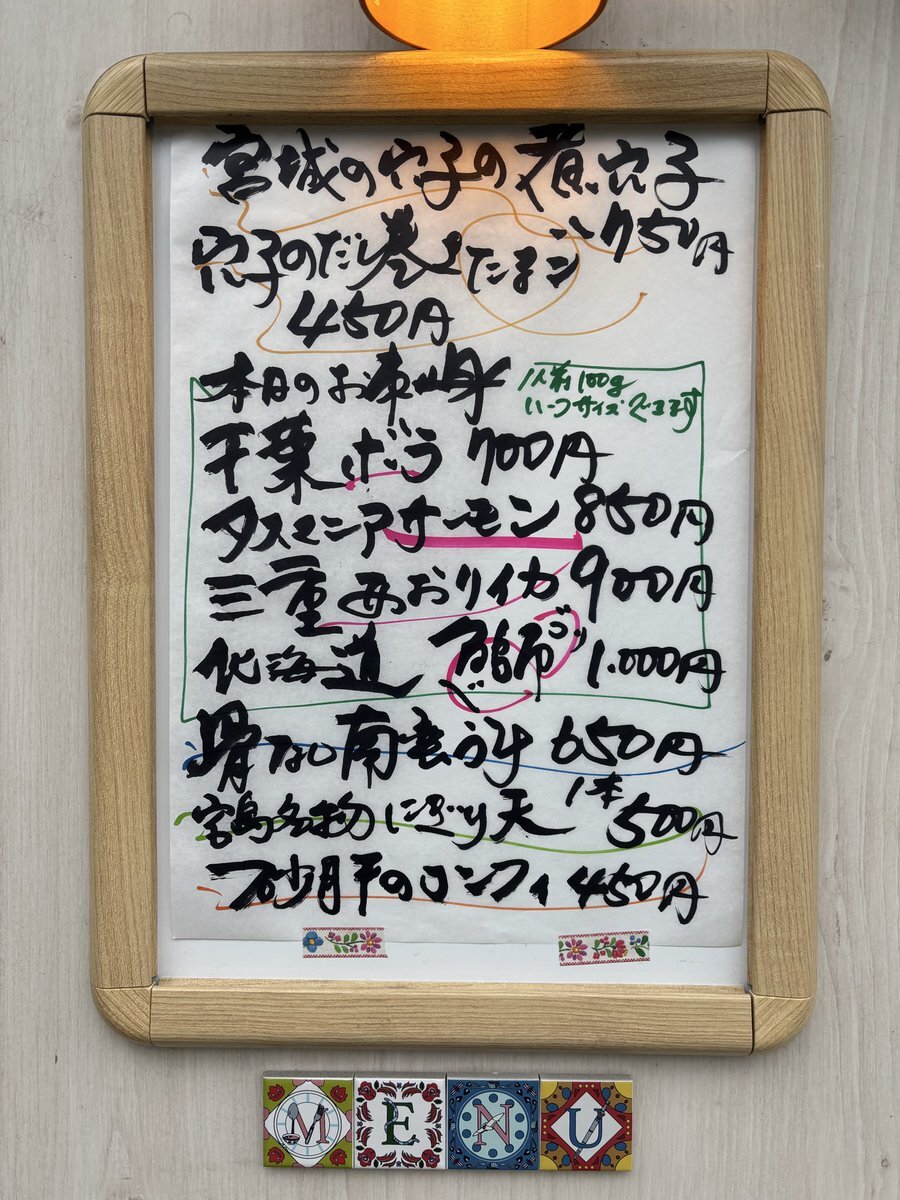 宮城の穴子の煮穴子
750円
穴子のだし巻きたまご
450円
本日のお刺身
1人前100g
ハーフサイズできます
千葉 ボラ 700円
タスマニアサーモン 850円
三重 あおりイカ 900円
北海道 鰤 1.000円
骨なし南蛮づけ 650円
宮島名物にぎり天 1本 500円
砂肝のコンフィ 450円
MENU